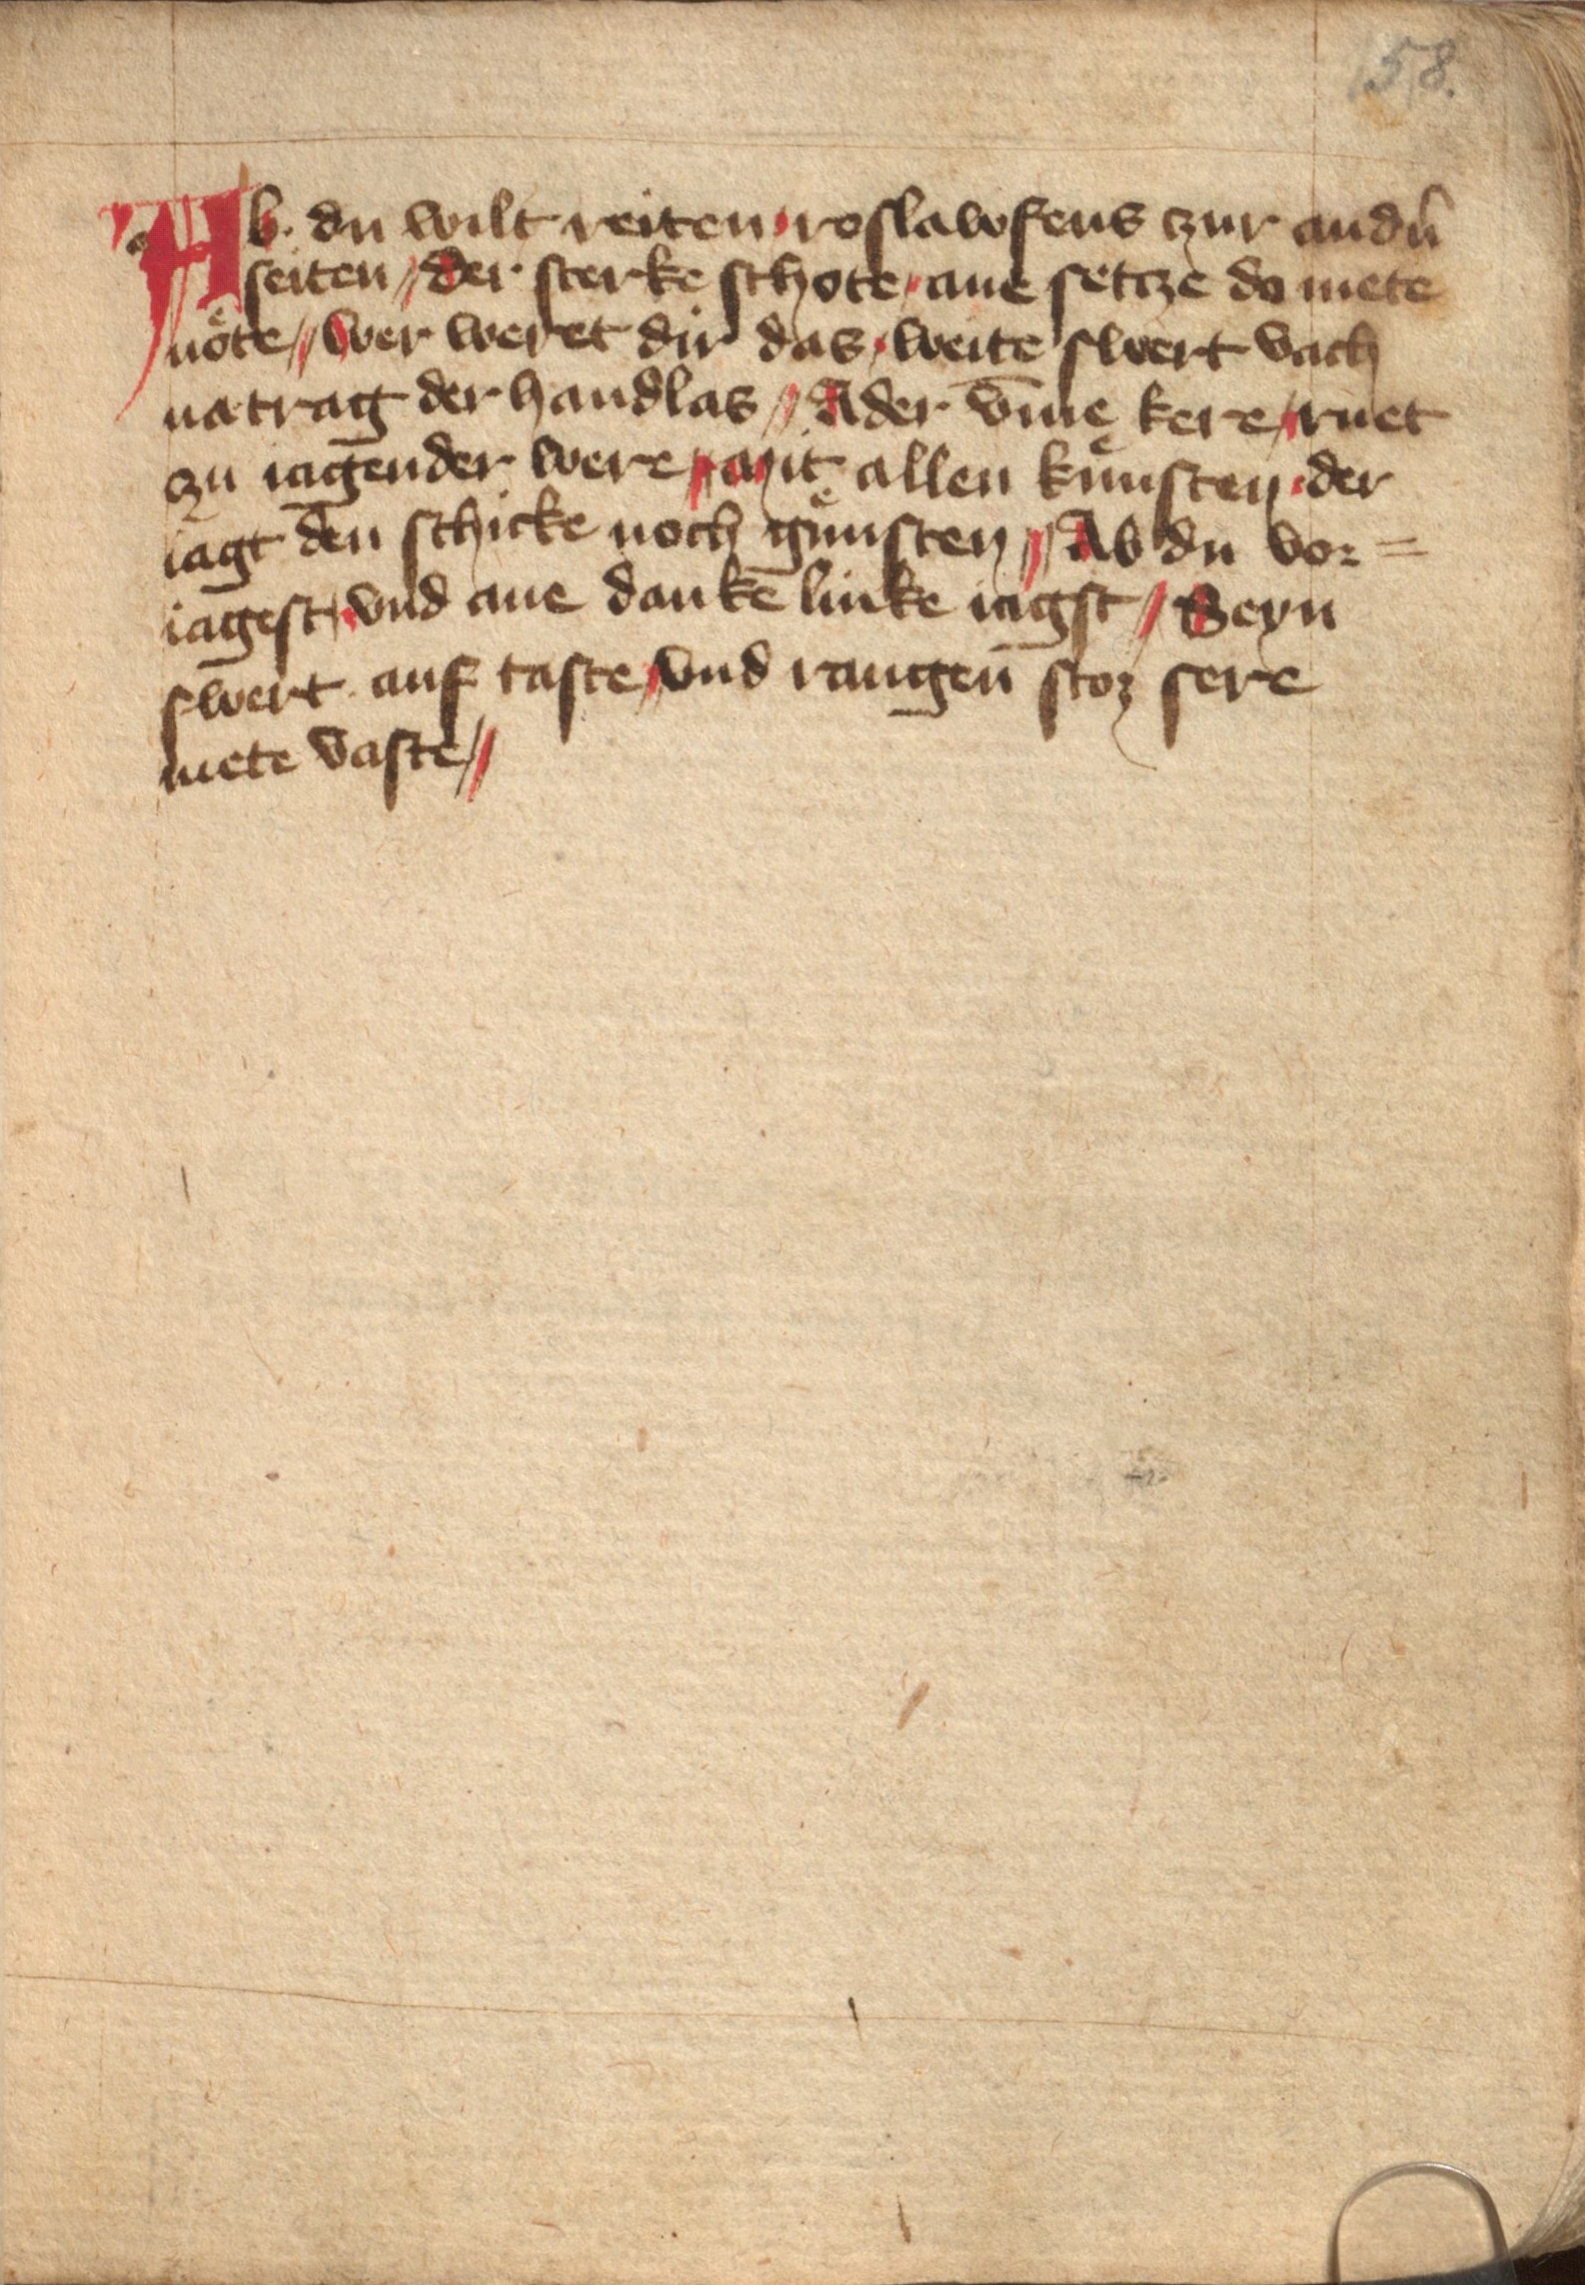 58.
Ab du wilt reiten / roslawfens czur andn̄
seiten // der sterke schote / ane setcze do mete
nöte // Wer weret dir das / weite swert vach
na trag der handlas // Ader vm̄e kere / ruet
czu iagender were / mit allen kunsten / der
iagt den schicke noch gunsten // Ab du vor=
iagest / vnd ane danke linke iagst // Seyn
swert auf taste / vnd rangen̄ stoz sere
mete vaste //